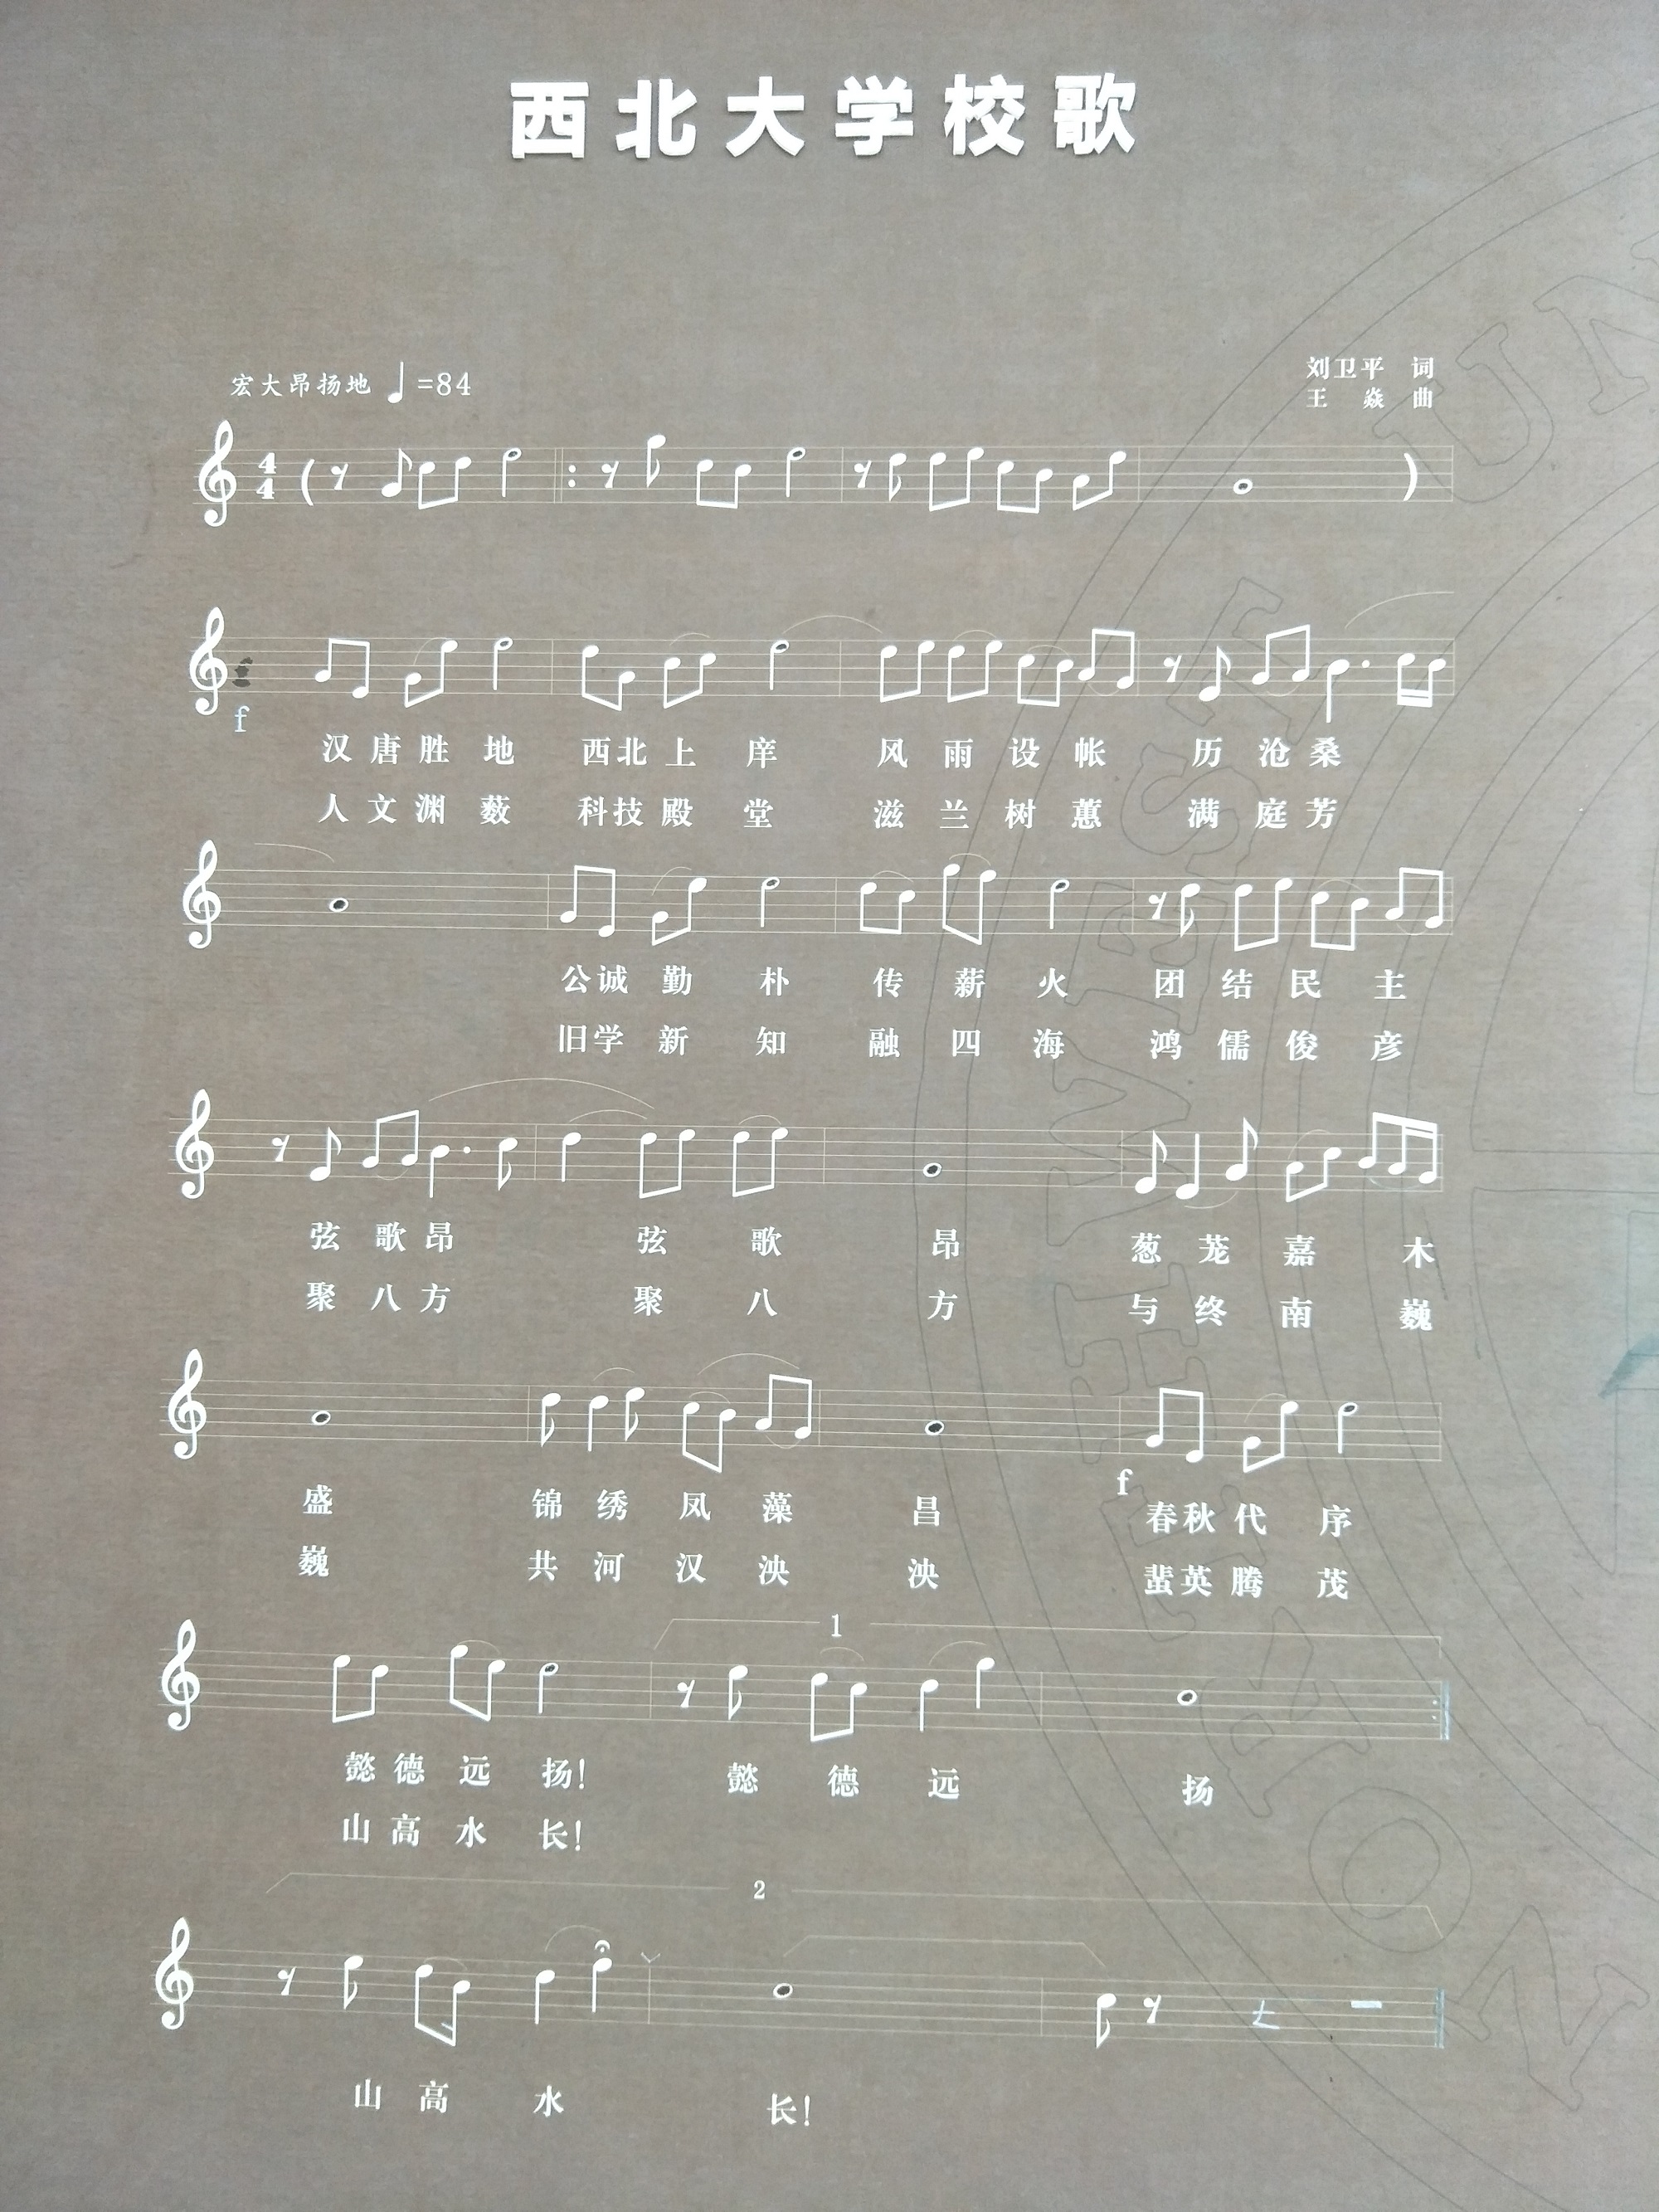 西北大学校歌
宏大昂扬地 ♩=84
刘卫平 词
王焱 曲
4
4
f
汉唐胜地 西北上庠 风雨设帐 历沧桑
人文渊薮 科技殿堂 滋兰树蕙 满庭芳
公诚勤朴 传薪火 团结民主
旧学新知 融四海 鸿儒俊彦
弦歌昂 弦歌昂 葱茏嘉木
聚八方 聚八方 与终南巍
盛 锦绣凤藻昌 f 春秋代序
巍 共河汉泱泱 蜚英腾茂
1
懿德远扬! 懿德远扬
山高水长!
2
山高水长!